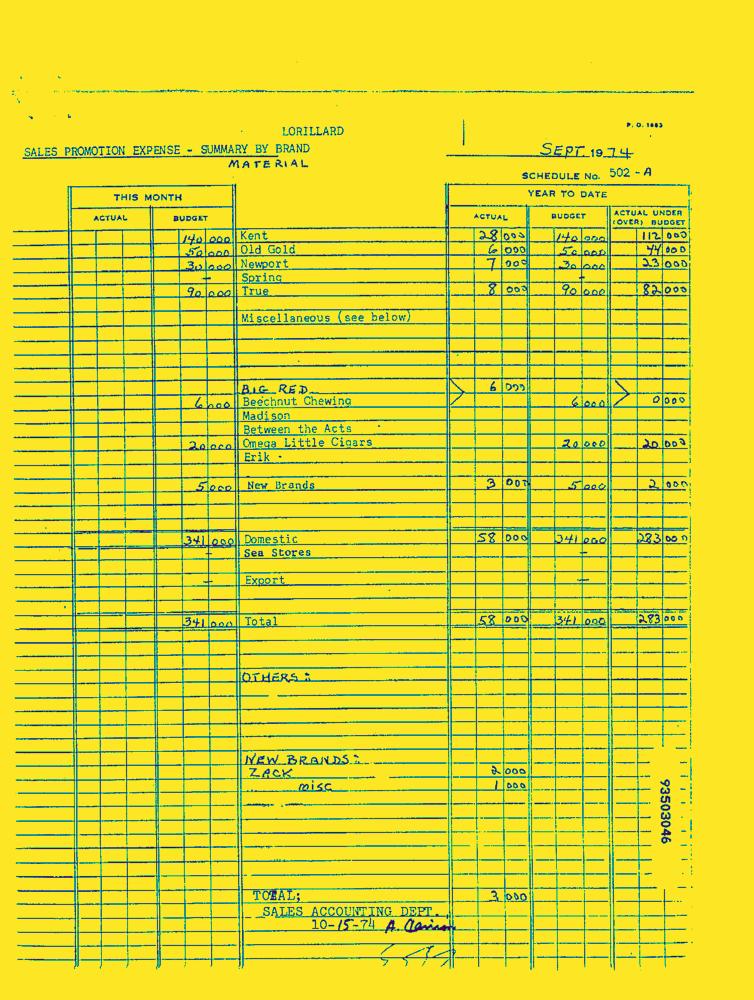 P. O. 1683
LORILLARD
SALES PROMOTION EXPENSE - SUMMARY BY BRAND
MATERIAL
SEPT. 1974
SCHEDULE No. 502 - A
THIS MONTH
YEAR TO DATE
ACTUAL BUDGET ACTUAL BUDGET ACTUAL UNDER (OVER) BUDGET
140 000 Kent 28 000 140 000 112 000
50 000 Old Gold 6 000 50 000 44 000
30 000 Newport 7 000 30 000 23 000
- Spring -
90 000 True 8 000 90 000 82 000
Miscellaneous (see below)
BIG RED 6 000
6 000 Beechnut Chewing 6 000 0 000
Madison
Between the Acts
20 000 Omega Little Cigars 20 000 20 000
Erik -
5 000 New Brands 3 000 5 000 2 000
341 000 Domestic 58 000 341 000 283 000
- Sea Stores -
- Export -
341 000 Total 58 000 341 000 283 000
OTHERS:
NEW BRANDS:
ZACK 2 000
misc 1 000
93503046
TOTAL; 3 000
SALES ACCOUNTING DEPT.
10-15-74 A.